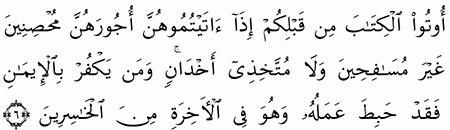 أُوتُوا۟ ٱلْكِتَـٰبَ مِن قَبْلِكُمْ إِذَآ ءَاتَيْتُمُوهُنَّ أُجُورَهُنَّ مُحْصِنِينَ
غَيْرَ مُسَـٰفِحِينَ وَلَا مُتَّخِذِىٓ أَخْدَانٍۢ ۗ وَمَن يَكْفُرْ بِٱلْإِيمَـٰنِ
فَقَدْ حَبِطَ عَمَلُهُۥ وَهُوَ فِى ٱلْـَٔاخِرَةِ مِنَ ٱلْخَـٰسِرِينَ ۝٦